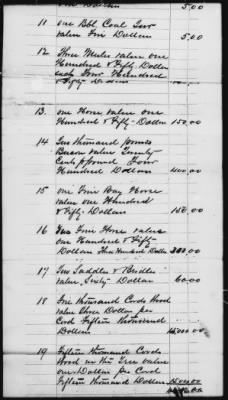 one Dollars 5.00
11 one Bbl Coal Tar
value Five Dollars 5.00
12 Three Mules value one
Hundred & Fifty Dollars
each Four Hundred
& Fifty Dollars
13. one Horse value one
Hundred & Fifty Dollars 150.00
14 Two thousand pounds
Bacon value Twenty
Cents pr pound Four
Hundred Dollars 400.00
15 one Fine Bay Horse
value one Hundred
& Fifty Dollars 150.00
16 Two Fine Horses value
one Hundred & Fifty
Dollars Three Hundred Dollars 300.00
17 Two Saddles & Bridles
value Sixty Dollars 60.00
18 Five thousand Cords Wood
value Three Dollars per
Cord Fifteen thousand
Dollars 15,000.00
19 Fifteen thousand Cords
Wood in the Tree value
one Dollar per Cord
Fifteen thousand Dollars 15,000.00